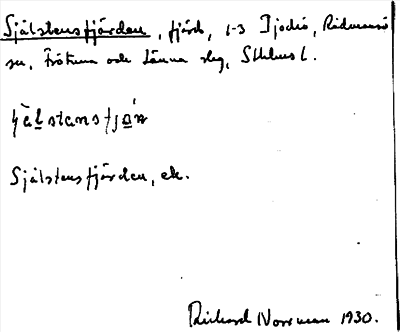 Själstensfjärden, fjärd, i-3 Djodiö, Rådmansö
sn, Frötuna och Länna slg, Sthlms l.
själstansfjän
Själstensfjärden, ek.
Richard Norrman 1930.